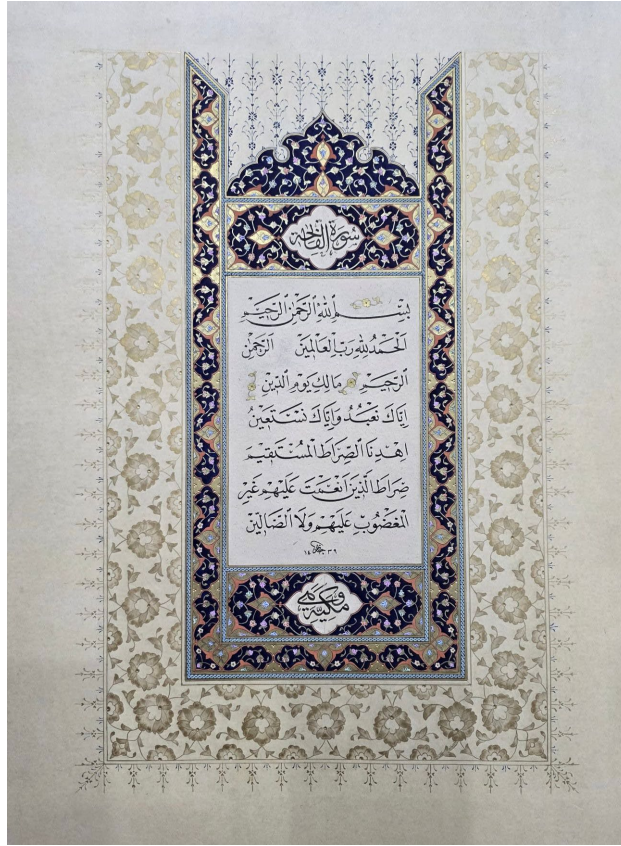 سورة الفاتحة
بِسْمِ ٱللّٰهِ ٱلرَّحْمٰنِ ٱلرَّحِيمِ
اَلْحَمْدُ لِلّٰهِ رَبِّ الْعَالَمِينَ اَلرَّحْمٰنِ
الرَّحِيمِ مَالِكِ يَوْمِ الدِّينِ
اِيَّاكَ نَعْبُدُ وَاِيَّاكَ نَسْتَعِينُ
اِهْدِنَا الصِّرَاطَ الْمُسْتَقِيمَ
صِرَاطَ الَّذِينَ اَنْعَمْتَ عَلَيْهِمْ غَيْرِ
الْمَغْضُوبِ عَلَيْهِمْ وَلَا الضَّالِّينَ
١٤٣٩
وهي مكية